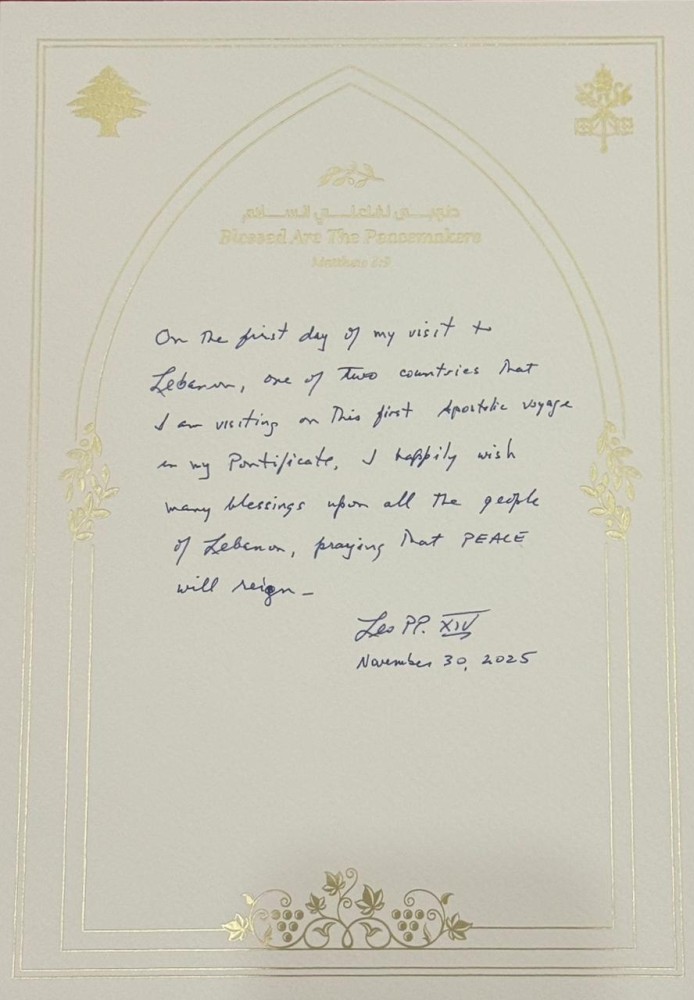 طوبى لفاعلي السلام
Blessed Are The Peacemakers
Matthew 5:9
On the first day of my visit to
Lebanon, one of two countries that
I am visiting on this first Apostolic voyage
in my Pontificate, I happily wish
many blessings upon all the people
of Lebanon, praying that PEACE
will reign —
Leo PP. XIV
November 30, 2025